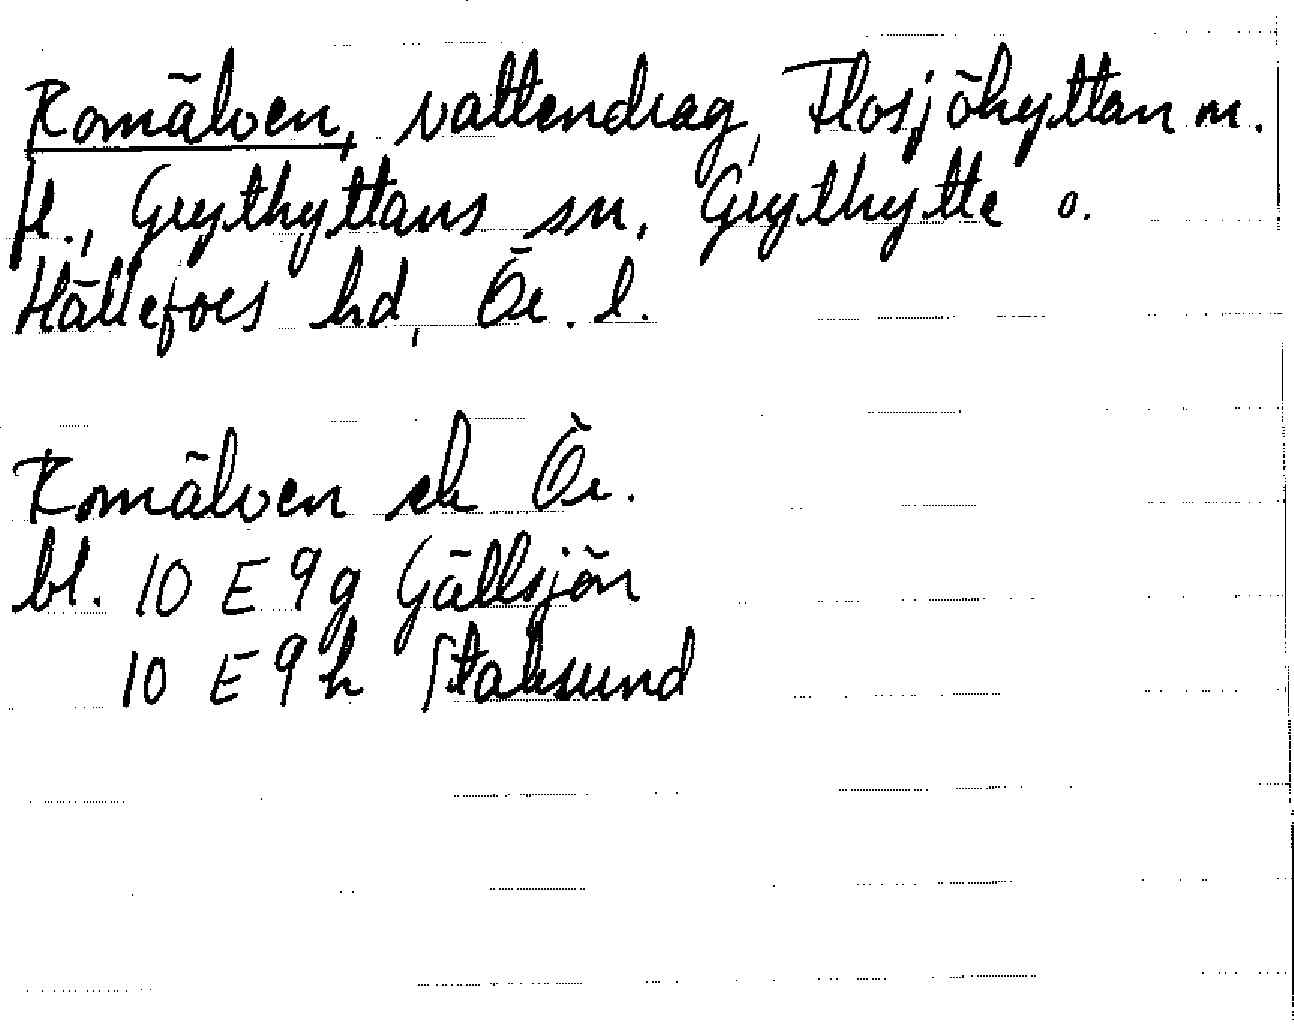 Romälven, vattendrag, Flosjöhyttan m.
fl., Grythyttans sn, Grythytte o.
Hällefors hd, Ör. l.
Romälven ek Ör.
bl. 10 E 9g Gällsjön
10 E 9h Staksund